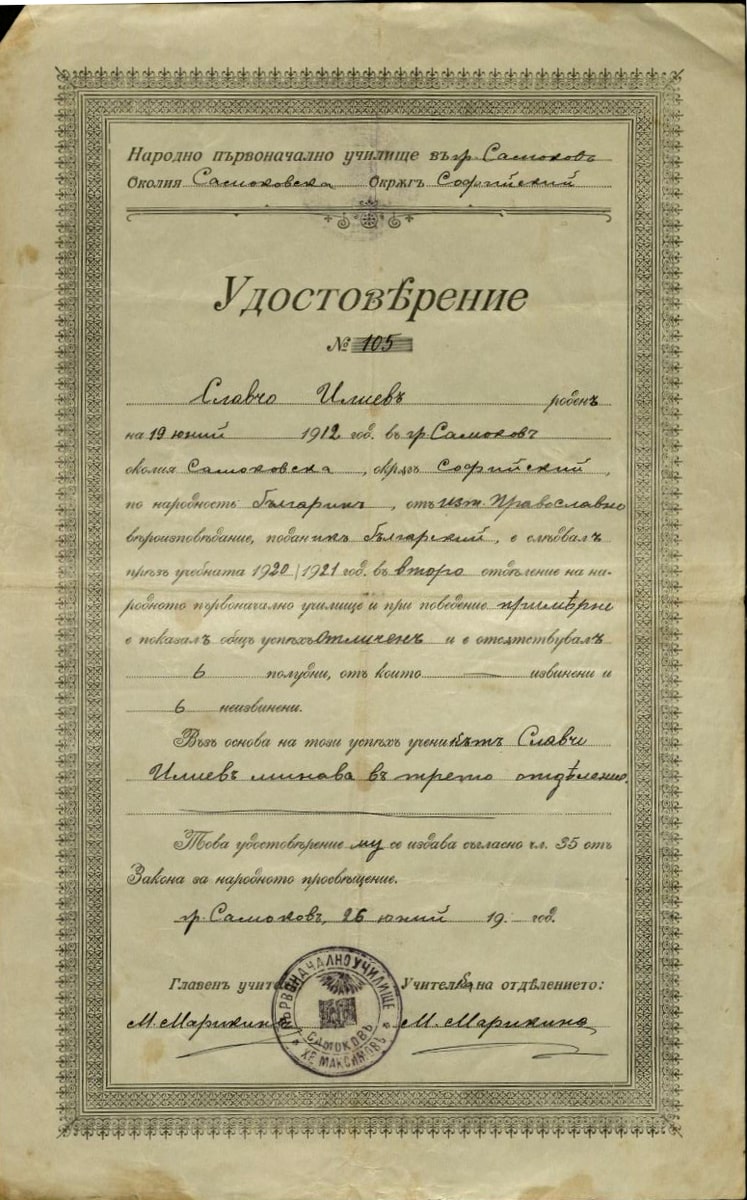 Народно първоначално училище въ гр. Самоковъ
Околия Самоковска Окрѫгъ Софийский
Удостовѣрение
№ 105
Славчо Илиевъ роденъ
на 19 юний 1912 год. въ гр. Самоковъ
околия Самоковска, окрѫгъ Софийский,
по народность Българинъ, отъ изт. Православно
вѣроизповѣдание, поданикъ Българский, е слѣдвалъ
прѣзъ учебната 1920/1921 год. въ второ отдѣление на на-
родното първоначално училище и при поведение примѣрно
е показалъ общъ успѣхъ Отличенъ и е отсѫтствувалъ
6 полудни, отъ които — извинени и
6 неизвинени.
Възъ основа на този успѣхъ ученикътъ Славчо
Илиевъ минава въ трето отдѣление.
Това удостовѣрение му се издава съгласно чл. 35 отъ
Закона за народното просвѣщение.
гр. Самоковъ, 26 юний 19.— год.
Главенъ учител Учителка на отдѣлението:
М. Марикина М. Марикина
ПЪРВОНАЧАЛНО УЧИЛИЩЕ
САМОКОВЪ
ХР. МАКСИМОВЪ